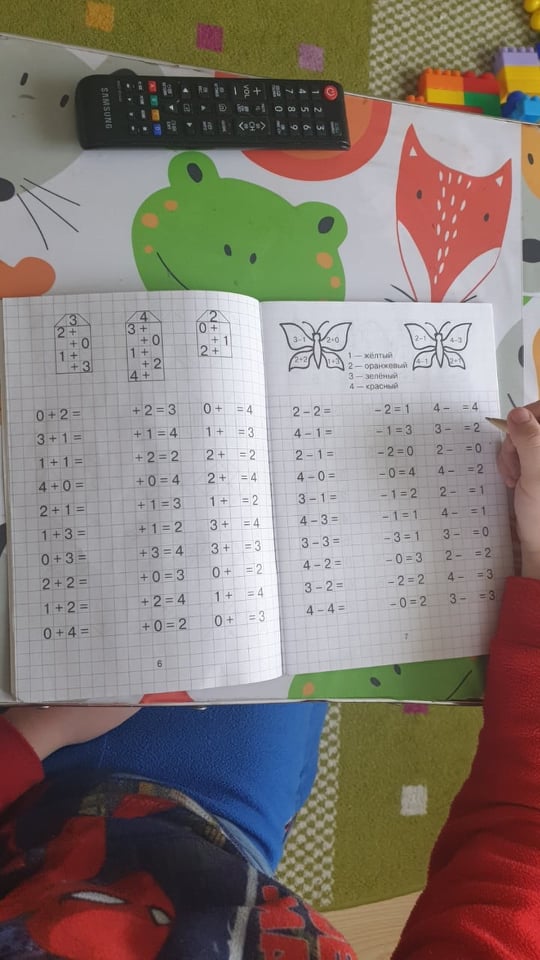 SAMSUNG
VOL
CH
1 2 3
4 5 6
7 8 9
0
3
2 +
+ 0
1 +
+ 3
4
3 +
+ 0
1 +
+ 2
4 +
2
0 +
+ 1
2 +
0 + 2 = + 2 = 3 0 + = 4
3 + 1 = + 1 = 4 1 + = 3
1 + 1 = + 2 = 2 2 + = 2
4 + 0 = + 0 = 4 2 + = 4
2 + 1 = + 1 = 3 1 + = 2
1 + 3 = + 1 = 2 3 + = 4
0 + 3 = + 3 = 4 3 + = 3
2 + 2 = + 0 = 3 0 + = 2
1 + 2 = + 2 = 4 1 + = 4
0 + 4 = + 0 = 2 0 + = 3
6
3–1 2+0
2+2 1+3
2–1 4–3
4–1 2+1
1 — жёлтый
2 — оранжевый
3 — зелёный
4 — красный
2 – 2 = – 2 = 1 4 – = 4
4 – 1 = – 1 = 3 3 – = 2
2 – 1 = – 2 = 0 2 – = 0
4 – 0 = – 0 = 4 4 – = 2
3 – 1 = – 1 = 2 2 – = 1
4 – 3 = – 1 = 1 4 – = 1
3 – 3 = – 3 = 1 3 – = 0
4 – 2 = – 0 = 3 2 – = 2
3 – 2 = – 2 = 2 4 – = 3
4 – 4 = – 0 = 2 3 – = 3
7